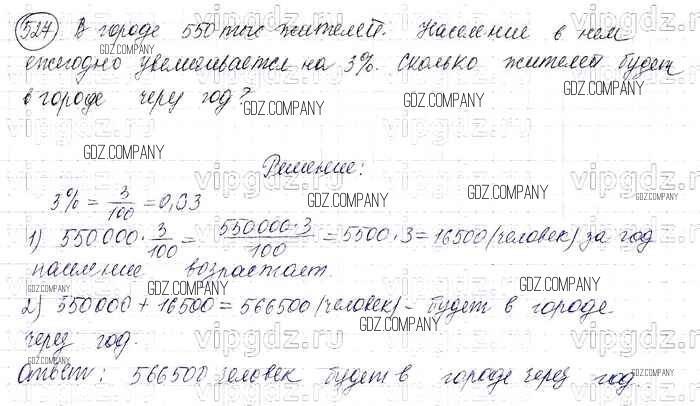 527 В городе 550 тыс жителей. Население в нем
ежегодно увеличивается на 3%. Сколько жителей будет
в городе через год?
Решение:
3% = 3/100 = 0,03
1) 550000 · 3/100 = 550000·3/100 = 5500·3 = 16500 (человек) за год
население возрастает.
2) 550000 + 16500 = 566500 (человек) - будет в городе
через год.
Ответ: 566500 человек будет в городе через год.
GDZ.COMPANY
GDZ.COMPANY
GDZ.COMPANY
GDZ.COMPANY
GDZ.COMPANY
GDZ.COMPANY
GDZ.COMPANY
GDZ.COMPANY
GDZ.COMPANY
GDZ.COMPANY
GDZ.COMPANY
GDZ.COMPANY
GDZ.COMPANY
vipgdz.ru
vipgdz.ru
vipgdz.ru
vipgdz.ru